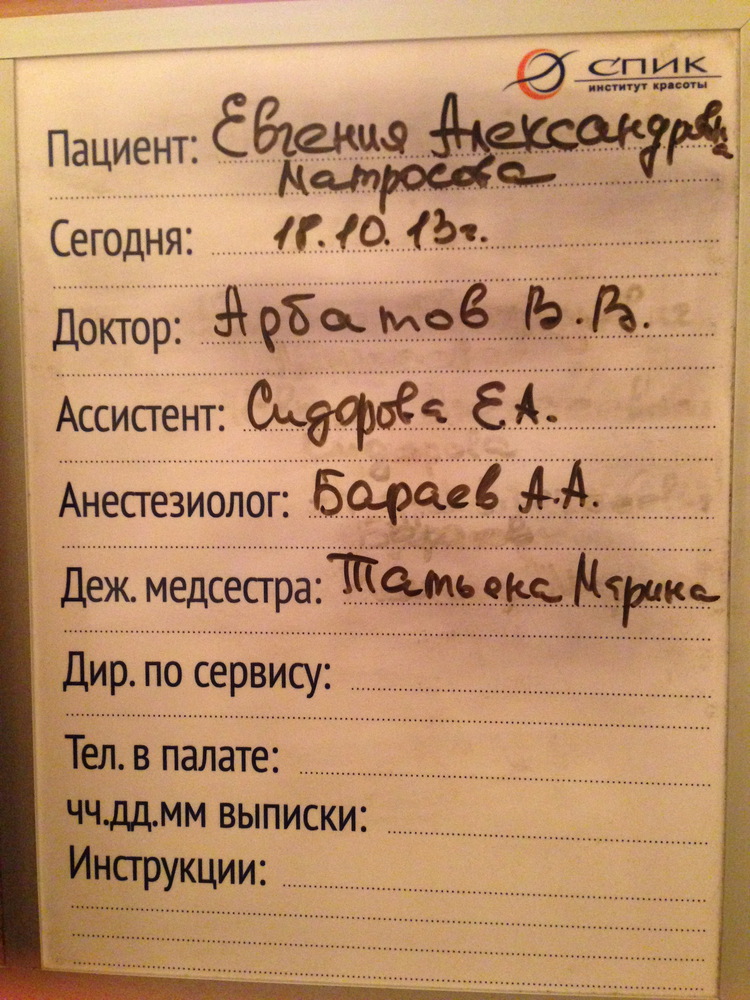 СПИК
институт красоты
Пациент: Евгения Александровна
Матросова
Сегодня: 18.10.13г.
Доктор: Арбатов В.В.
Ассистент: Сидорова Е.А.
Анестезиолог: Бараев А.А.
Деж. медсестра: Татьяна Марина
Дир. по сервису:
Тел. в палате:
чч.дд.мм выписки:
Инструкции: